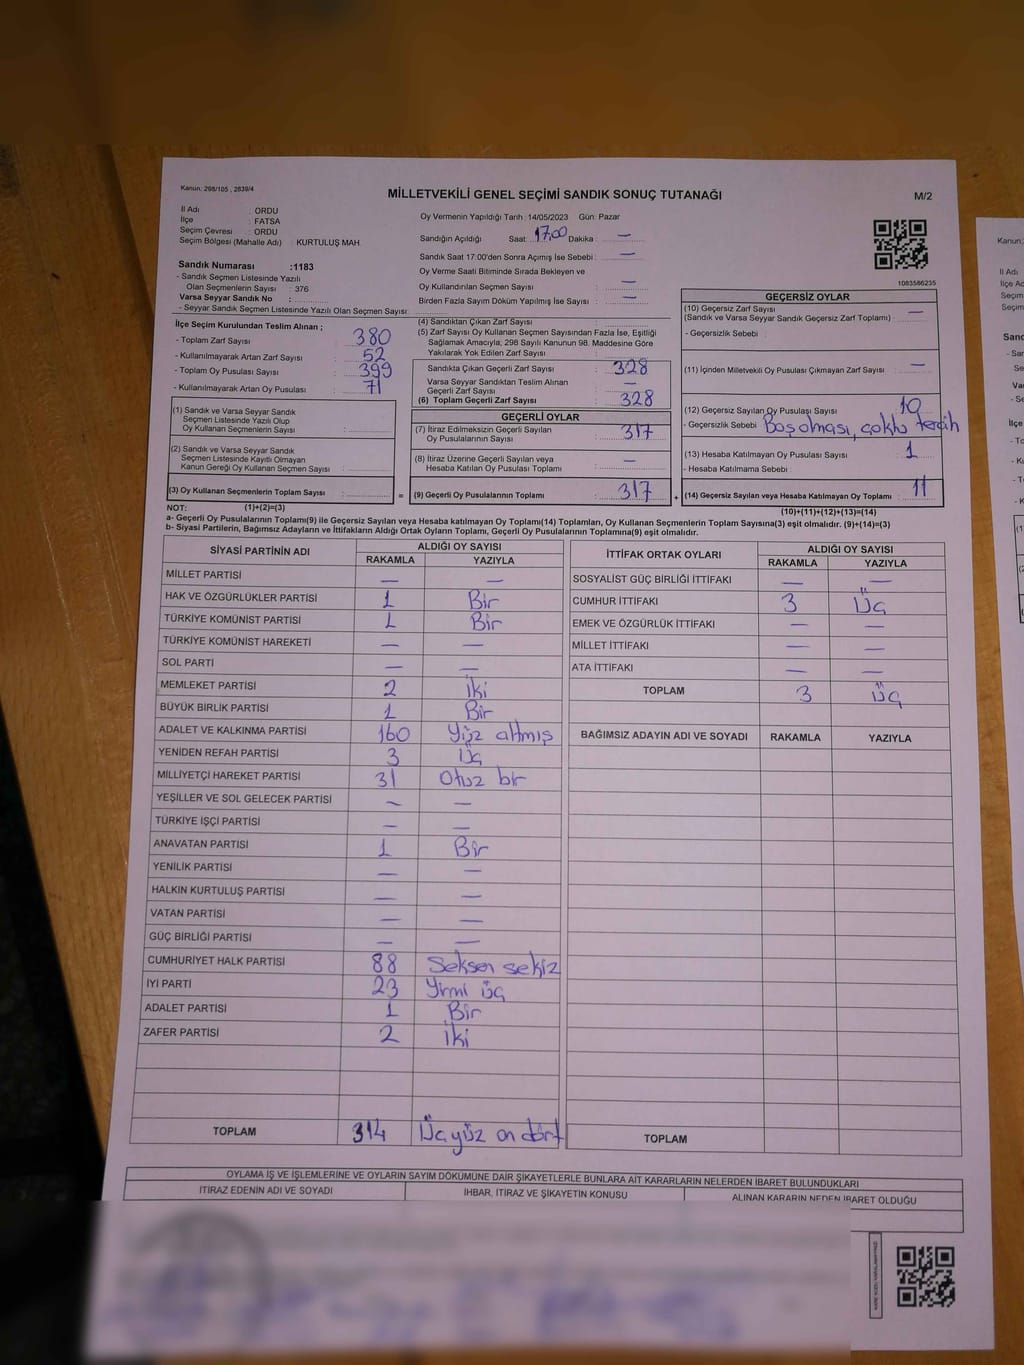 Kanun: 298/105 , 2839/4
MİLLETVEKİLİ GENEL SEÇİMİ SANDIK SONUÇ TUTANAĞI
M/2
İl Adı : ORDU
İlçe : FATSA
Seçim Çevresi : ORDU
Seçim Bölgesi (Mahalle Adı) : KURTULUŞ MAH.
Sandık Numarası :1183
- Sandık Seçmen Listesinde Yazılı
Olan Seçmenlerin Sayısı : 376
Varsa Seyyar Sandık No :
- Seyyar Sandık Seçmen Listesinde Yazılı Olan Seçmen Sayısı:
Oy Vermenin Yapıldığı Tarih :14/05/2023 Gün: Pazar
Sandığın Açıldığı Saat: 17,00 Dakika : —
Sandık Saat 17:00'den Sonra Açımış İse Sebebi : —
Oy Verme Saati Bitiminde Sırada Bekleyen ve
Oy Kullandırılan Seçmen Sayısı : —
Birden Fazla Sayım Döküm Yapılmış İse Sayısı : —
1083586235
İlçe Seçim Kurulundan Teslim Alınan ;
- Toplam Zarf Sayısı : 380
- Kullanılmayarak Artan Zarf Sayısı : 52
- Toplam Oy Pusulası Sayısı : 399
- Kullanılmayarak Artan Oy Pusulası : 71
(1) Sandık ve Varsa Seyyar Sandık
Seçmen Listesinde Yazılı Olup
Oy Kullanan Seçmenlerin Sayısı :
(2) Sandık ve Varsa Seyyar Sandık
Seçmen Listesinde Kayıtlı Olmayan
Kanun Gereği Oy Kullanan Seçmen Sayısı :
(3) Oy Kullanan Seçmenlerin Toplam Sayısı :
(1)+(2)=(3)
(4) Sandıktan Çıkan Zarf Sayısı :
(5) Zarf Sayısı Oy Kullanan Seçmen Sayısından Fazla İse, Eşitliği
Sağlamak Amacıyla; 298 Sayılı Kanunun 98. Maddesine Göre
Yakılarak Yok Edilen Zarf Sayısı :
Sandıkta Çıkan Geçerli Zarf Sayısı : 328
Varsa Seyyar Sandıktan Teslim Alınan
Geçerli Zarf Sayısı : —
(6) Toplam Geçerli Zarf Sayısı : 328
GEÇERLİ OYLAR
(7) İtiraz Edilmeksizin Geçerli Sayılan
Oy Pusulalarının Sayısı : 317
(8) İtiraz Üzerine Geçerli Sayılan veya
Hesaba Katılan Oy Pusulası Toplamı : —
= (9) Geçerli Oy Pusulalarının Toplamı : 317
GEÇERSİZ OYLAR
(10) Geçersiz Zarf Sayısı
(Sandık ve Varsa Seyyar Sandık Geçersiz Zarf Toplamı) : —
- Geçersizlik Sebebi :
(11) İçinden Milletvekili Oy Pusulası Çıkmayan Zarf Sayısı : —
(12) Geçersiz Sayılan Oy Pusulası Sayısı : 10
- Geçersizlik Sebebi : Boş olması, çoklu tercih
(13) Hesaba Katılmayan Oy Pusulası Sayısı : 1
- Hesaba Katılmama Sebebi :
+ (14) Geçersiz Sayılan veya Hesaba Katılmayan Oy Toplamı : 11
(10)+(11)+(12)+(13)=(14)
NOT:
a- Geçerli Oy Pusulalarının Toplamı(9) ile Geçersiz Sayılan veya Hesaba katılmayan Oy Toplamı(14) Toplamları, Oy Kullanan Seçmenlerin Toplam Sayısına(3) eşit olmalıdır. (9)+(14)=(3)
b- Siyasi Partilerin, Bağımsız Adayların ve İttifakların Aldığı Ortak Oyların Toplamı, Geçerli Oy Pusulalarının Toplamına(9) eşit olmalıdır.
SİYASİ PARTİNİN ADI
ALDIĞI OY SAYISI
RAKAMLA YAZIYLA
MİLLET PARTİSİ — —
HAK VE ÖZGÜRLÜKLER PARTİSİ 1 Bir
TÜRKİYE KOMÜNİST PARTİSİ 1 Bir
TÜRKİYE KOMÜNİST HAREKETİ — —
SOL PARTİ — —
MEMLEKET PARTİSİ 2 İki
BÜYÜK BİRLİK PARTİSİ 1 Bir
ADALET VE KALKINMA PARTİSİ 160 Yüz altmış
YENİDEN REFAH PARTİSİ 3 Üç
MİLLİYETÇİ HAREKET PARTİSİ 31 Otuz bir
YEŞİLLER VE SOL GELECEK PARTİSİ — —
TÜRKİYE İŞÇİ PARTİSİ — —
ANAVATAN PARTİSİ 1 Bir
YENİLİK PARTİSİ — —
HALKIN KURTULUŞ PARTİSİ — —
VATAN PARTİSİ — —
GÜÇ BİRLİĞİ PARTİSİ — —
CUMHURİYET HALK PARTİSİ 88 Seksen sekiz
İYİ PARTİ 23 Yirmi üç
ADALET PARTİSİ 1 Bir
ZAFER PARTİSİ 2 İki
TOPLAM 314 Üçyüz on dört
İTTİFAK ORTAK OYLARI
ALDIĞI OY SAYISI
RAKAMLA YAZIYLA
SOSYALİST GÜÇ BİRLİĞİ İTTİFAKI — —
CUMHUR İTTİFAKI 3 Üç
EMEK VE ÖZGÜRLÜK İTTİFAKI — —
MİLLET İTTİFAKI — —
ATA İTTİFAKI — —
TOPLAM 3 Üç
BAĞIMSIZ ADAYIN ADI VE SOYADI RAKAMLA YAZIYLA
TOPLAM
OYLAMA İŞ VE İŞLEMLERİNE VE OYLARIN SAYIM DÖKÜMÜNE DAİR ŞİKAYETLERLE BUNLARA AİT KARARLARIN NELERDEN İBARET BULUNDUKLARI
İTİRAZ EDENİN ADI VE SOYADI
İHBAR, İTİRAZ VE ŞİKAYETİN KONUSU
ALINAN KARARIN NEDEN İBARET OLDUĞU
Kanun:
İl Adı
İlçe